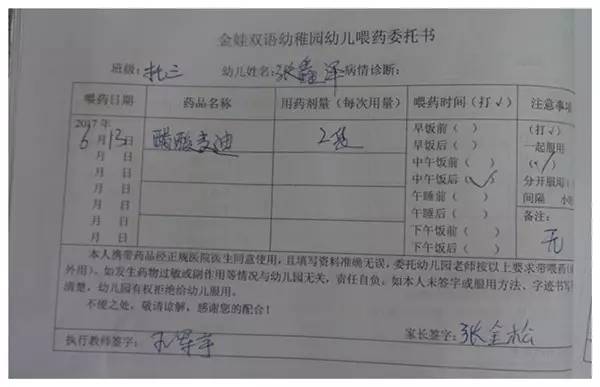 金娃双语幼稚园幼儿喂药委托书
班级：托三 幼儿姓名：张鑫泽 病情诊断：
喂药日期 药品名称 用药剂量（每次用量） 喂药时间（打√） 注意事项
2017年
6月13日 醋酸麦迪 2袋 早饭前（ ） （打√）
月 日 早饭后（ ） 一起服用
月 日 中午饭前（ ） （√）
月 日 中午饭后（√） 分开服用（
月 日 午睡前（ ） 间隔 小
月 日 午睡后（ ） 备注：
月 日 下午饭前（ ） 无
下午饭后（ ）
本人携带药品经正规医院医生同意使用，且填写资料准确无误，委托幼儿园老师按以上要求带喂药（
外用）。如发生药物过敏或副作用等情况与幼儿园无关，责任自负。如本人未签字或服用方法、字迹书写
清楚，幼儿园有权拒绝给幼儿服用。
不便之处，敬请谅解，感谢您的配合！
执行教师签字： 家长签字：张金松